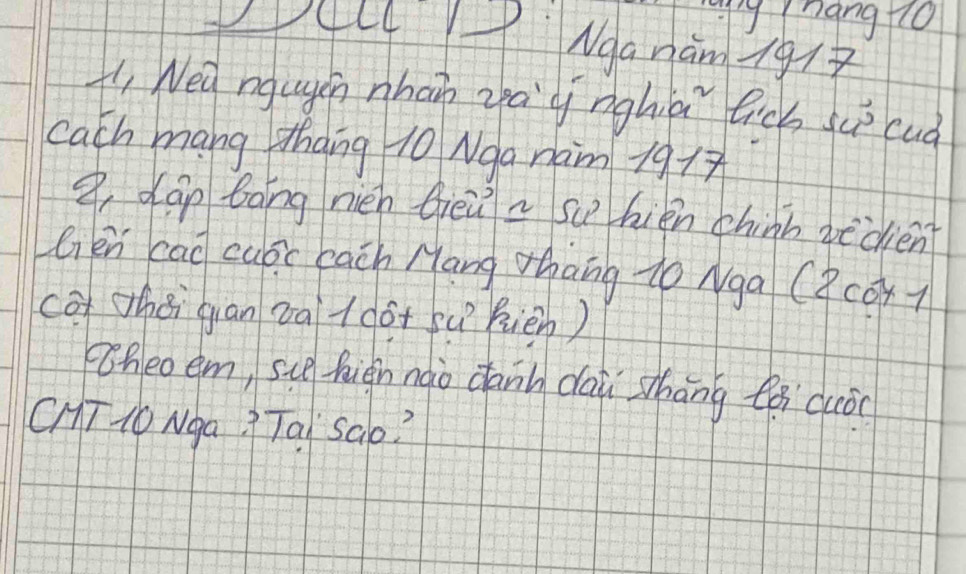 Tháng 10
Nga năm 1917
1, Nêu nguyên nhân và ý nghĩa lịch sử của
cách mạng tháng 10 Nga năm 1917
2, Lập bảng niên biểu ~ sự kiện chính về diễn
biến các cuộc cách Mạng tháng 10 Nga (2 cột 1
cột thời gian và 1 cột sự kiện)
Theo em, sự kiện nào đánh dấu thắng lợi cuộc
CMT 10 Nga? Tại sao?